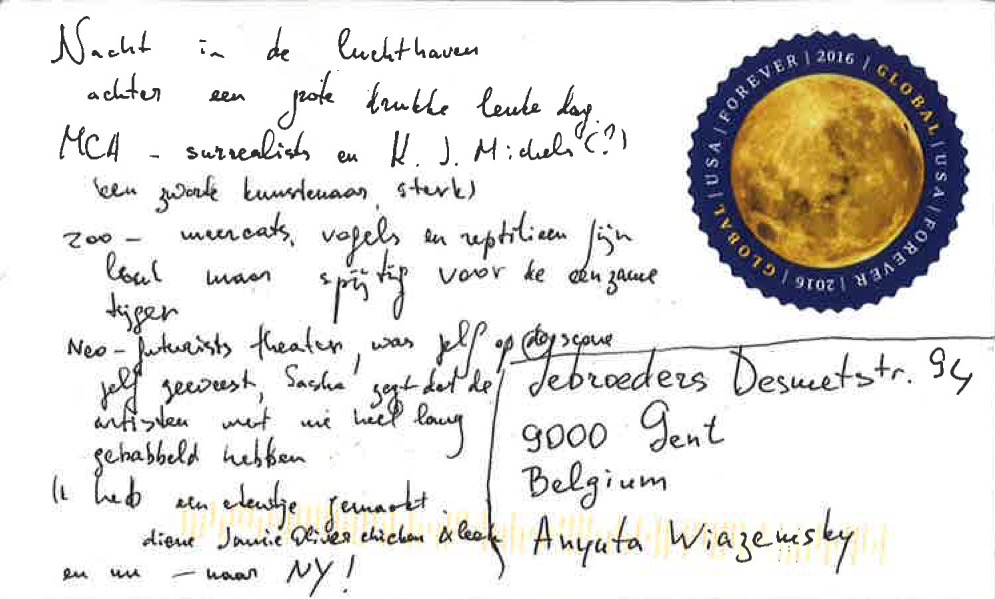 Nacht in de luchthaven
achter een grote drukke leuke dag.
MCA – surrealists en K. J. Michels (?)
(een zwarte kunstenaar, sterk)
zoo – meercats, vogels en reptilieen zijn
leuk maar spijtig voor de eenzame
tijger
Neo-futurists theater, was zelf op de scene
zelf geweest, Sasha zegt dat de
artisten met me heel lang
gebabbeld hebben
Ik heb een etentje gemaakt
diene Jamie Oliver chicken & leak
en nu – naar NY!
GLOBAL | USA | FOREVER | 2016 | GLOBAL | USA | FOREVER | 2016 |
Gebroeders Desmetstr. 94
9000 Gent
Belgium
Anyuta Wiazemsky